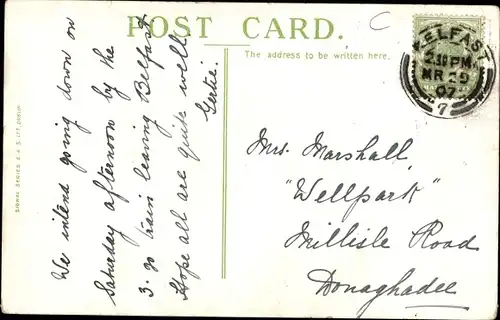 POST CARD.
The address to be written here.
BELFAST
2.30 PM
MR 29
07
7
We intend going down on
Saturday afternoon by the
3.30 train leaving Belfast
Hope all are quite well
Gertie.
Mrs. Marshall,
"Wellpark"
Millisle Road
Donaghadee
SIGNAL SERIES E & S LTD, DUBLIN